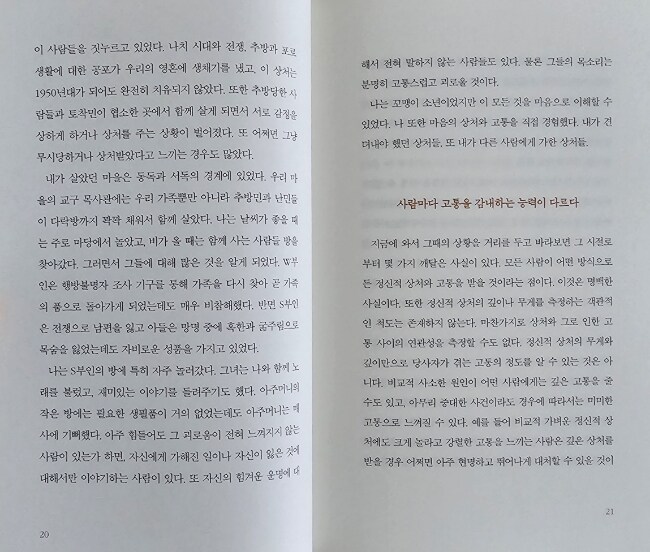 이 사람들을 짓누르고 있었다. 나치 시대와 전쟁, 추방과 포로
생활에 대한 공포가 우리의 영혼에 생채기를 냈고, 이 상처는
1950년대가 되어도 완전히 치유되지 않았다. 또한 추방당한 사
람들과 토착민이 협소한 곳에서 함께 살게 되면서 서로 감정을
상하게 하거나 상처를 주는 상황이 벌어졌다. 또 어쩌면 그냥
무시당하거나 상처받았다고 느끼는 경우도 많았다.
내가 살았던 마을은 동독과 서독의 경계에 있었다. 우리 마
을의 교구 목사관에는 우리 가족뿐만 아니라 추방민과 난민들
이 다락방까지 꽉꽉 채워서 함께 살았다. 나는 날씨가 좋을 때
는 주로 마당에서 놀았고, 비가 올 때는 함께 사는 사람들 방을
찾아갔다. 그러면서 그들에 대해 많은 것을 알게 되었다. W부
인은 행방불명자 조사 기구를 통해 가족을 다시 찾아 곧 가족
의 품으로 돌아가게 되었는데도 매우 비참해했다. 반면 S부인
은 전쟁으로 남편을 잃고 아들은 망명 중에 혹한과 굶주림으로
목숨을 잃었는데도 자비로운 성품을 가지고 있었다.
나는 S부인의 방에 특히 자주 놀러갔다. 그녀는 나와 함께 노
래를 불렀고, 재미있는 이야기를 들려주기도 했다. 아주머니의
작은 방에는 필요한 생필품이 거의 없었는데도 아주머니는 매
사에 기뻐했다. 아주 힘들어도 그 괴로움이 전혀 느껴지지 않는
사람이 있는가 하면, 자신에게 가해진 일이나 자신이 잃은 것에
대해서만 이야기하는 사람이 있다. 또 자신의 힘겨운 운명에 대
20
해서 전혀 말하지 않는 사람들도 있다. 물론 그들의 목소리는
분명히 고통스럽고 괴로울 것이다.
나는 꼬맹이 소년이었지만 이 모든 것을 마음으로 이해할 수
있었다. 나 또한 마음의 상처와 고통을 직접 경험했다. 내가 견
뎌내야 했던 상처들, 또 내가 다른 사람에게 가한 상처들.
사람마다 고통을 감내하는 능력이 다르다
지금에 와서 그때의 상황을 거리를 두고 바라보면 그 시절로
부터 몇 가지 깨달은 사실이 있다. 모든 사람이 어떤 방식으로
든 정신적 상처와 고통을 받을 것이라는 점이다. 이것은 명백한
사실이다. 또한 정신적 상처의 깊이나 무게를 측정하는 객관적
인 척도는 존재하지 않는다. 마찬가지로 상처와 그로 인한 고
통 사이의 연관성을 측정할 수도 없다. 정신적 상처의 무게와
깊이만으로 당사자가 겪는 고통의 정도를 알 수 있는 것은 아
니다. 비교적 사소한 원인이 어떤 사람에게는 깊은 고통을 줄
수도 있고, 아무리 중대한 사건이라도 경우에 따라서는 미미한
고통으로 느껴질 수 있다. 예를 들어 비교적 가벼운 정신적 상
처에도 크게 놀라고 강렬한 고통을 느끼는 사람은 깊은 상처를
받을 경우 어쩌면 아주 현명하고 뛰어나게 대처할 수 있을 것이
21